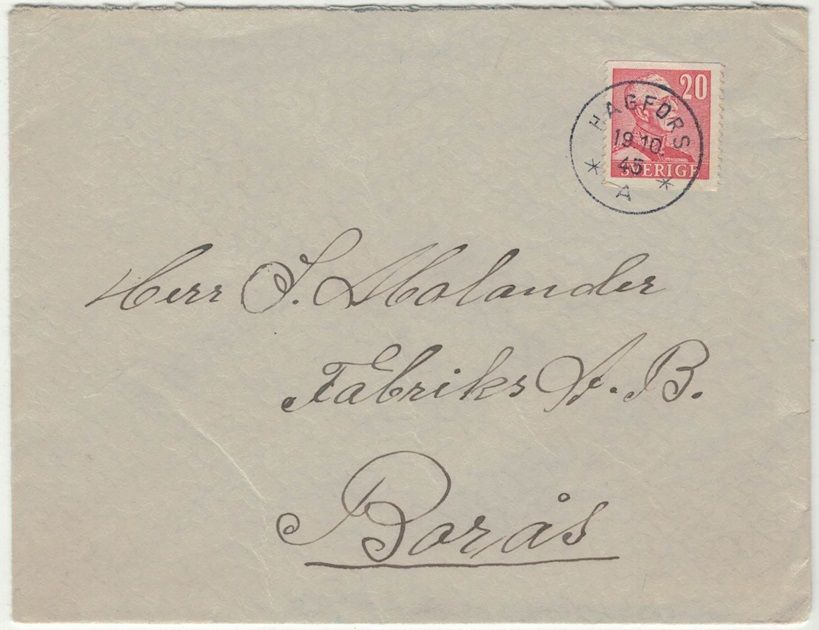 20
HAGFORS
19.10.
45
SVERIGE
A
Herr S. Molander
Fabriks A.B.
Borås